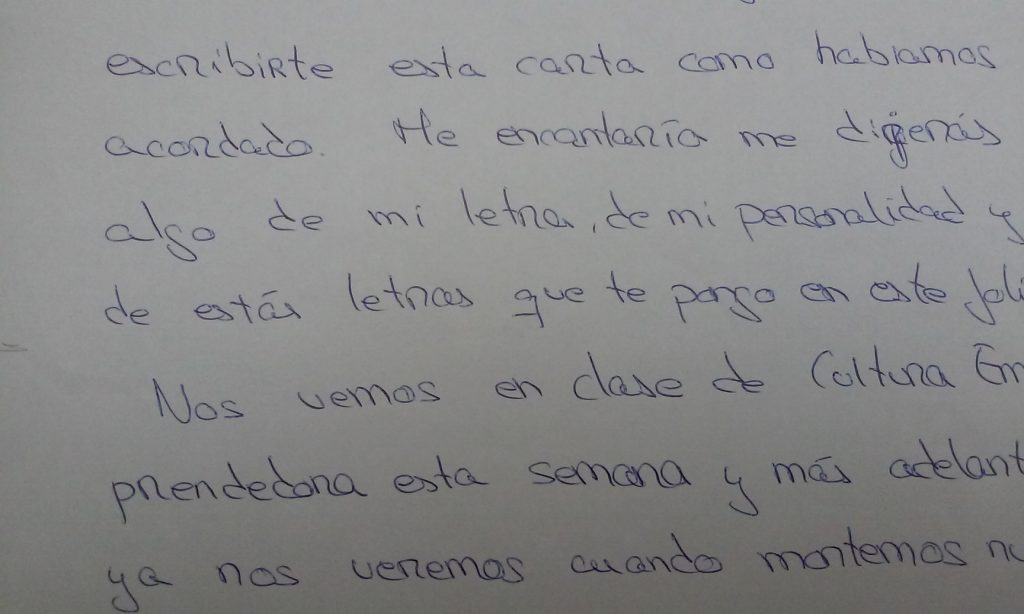 escribirte esta carta como habiamos
acordado. Me encantaría me digerás
algo de mi letra, de mi personalidad y
de estás letras que te pongo en este foli
Nos vemos en clase de Cultura Em
prendedora esta semana y más adelant
ya nos veremos cuando montemos nu